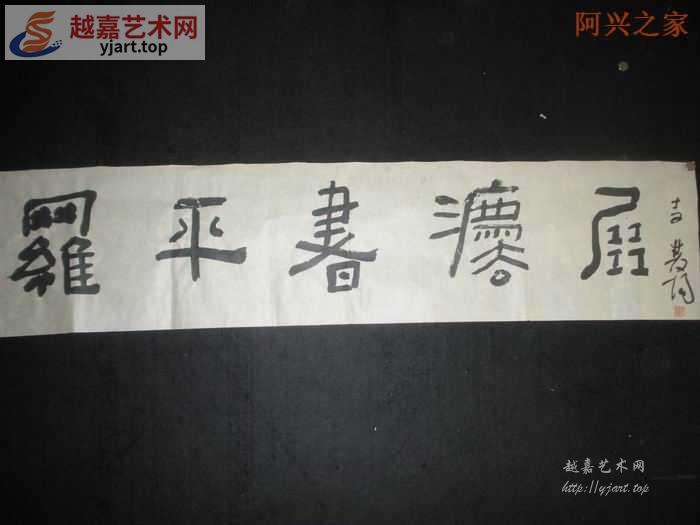 越嘉艺术网
yjart.top
阿兴之家
羅平書灋展
越嘉艺术网
http://yjart.top